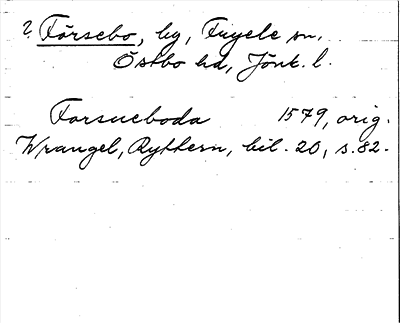 ?. Försebo, by, Fryele sn,
Östbo hd, Jönk. l.
Forsueboda 1579, orig.
Wrangel, Ryttern, bil. 20, s. 82.